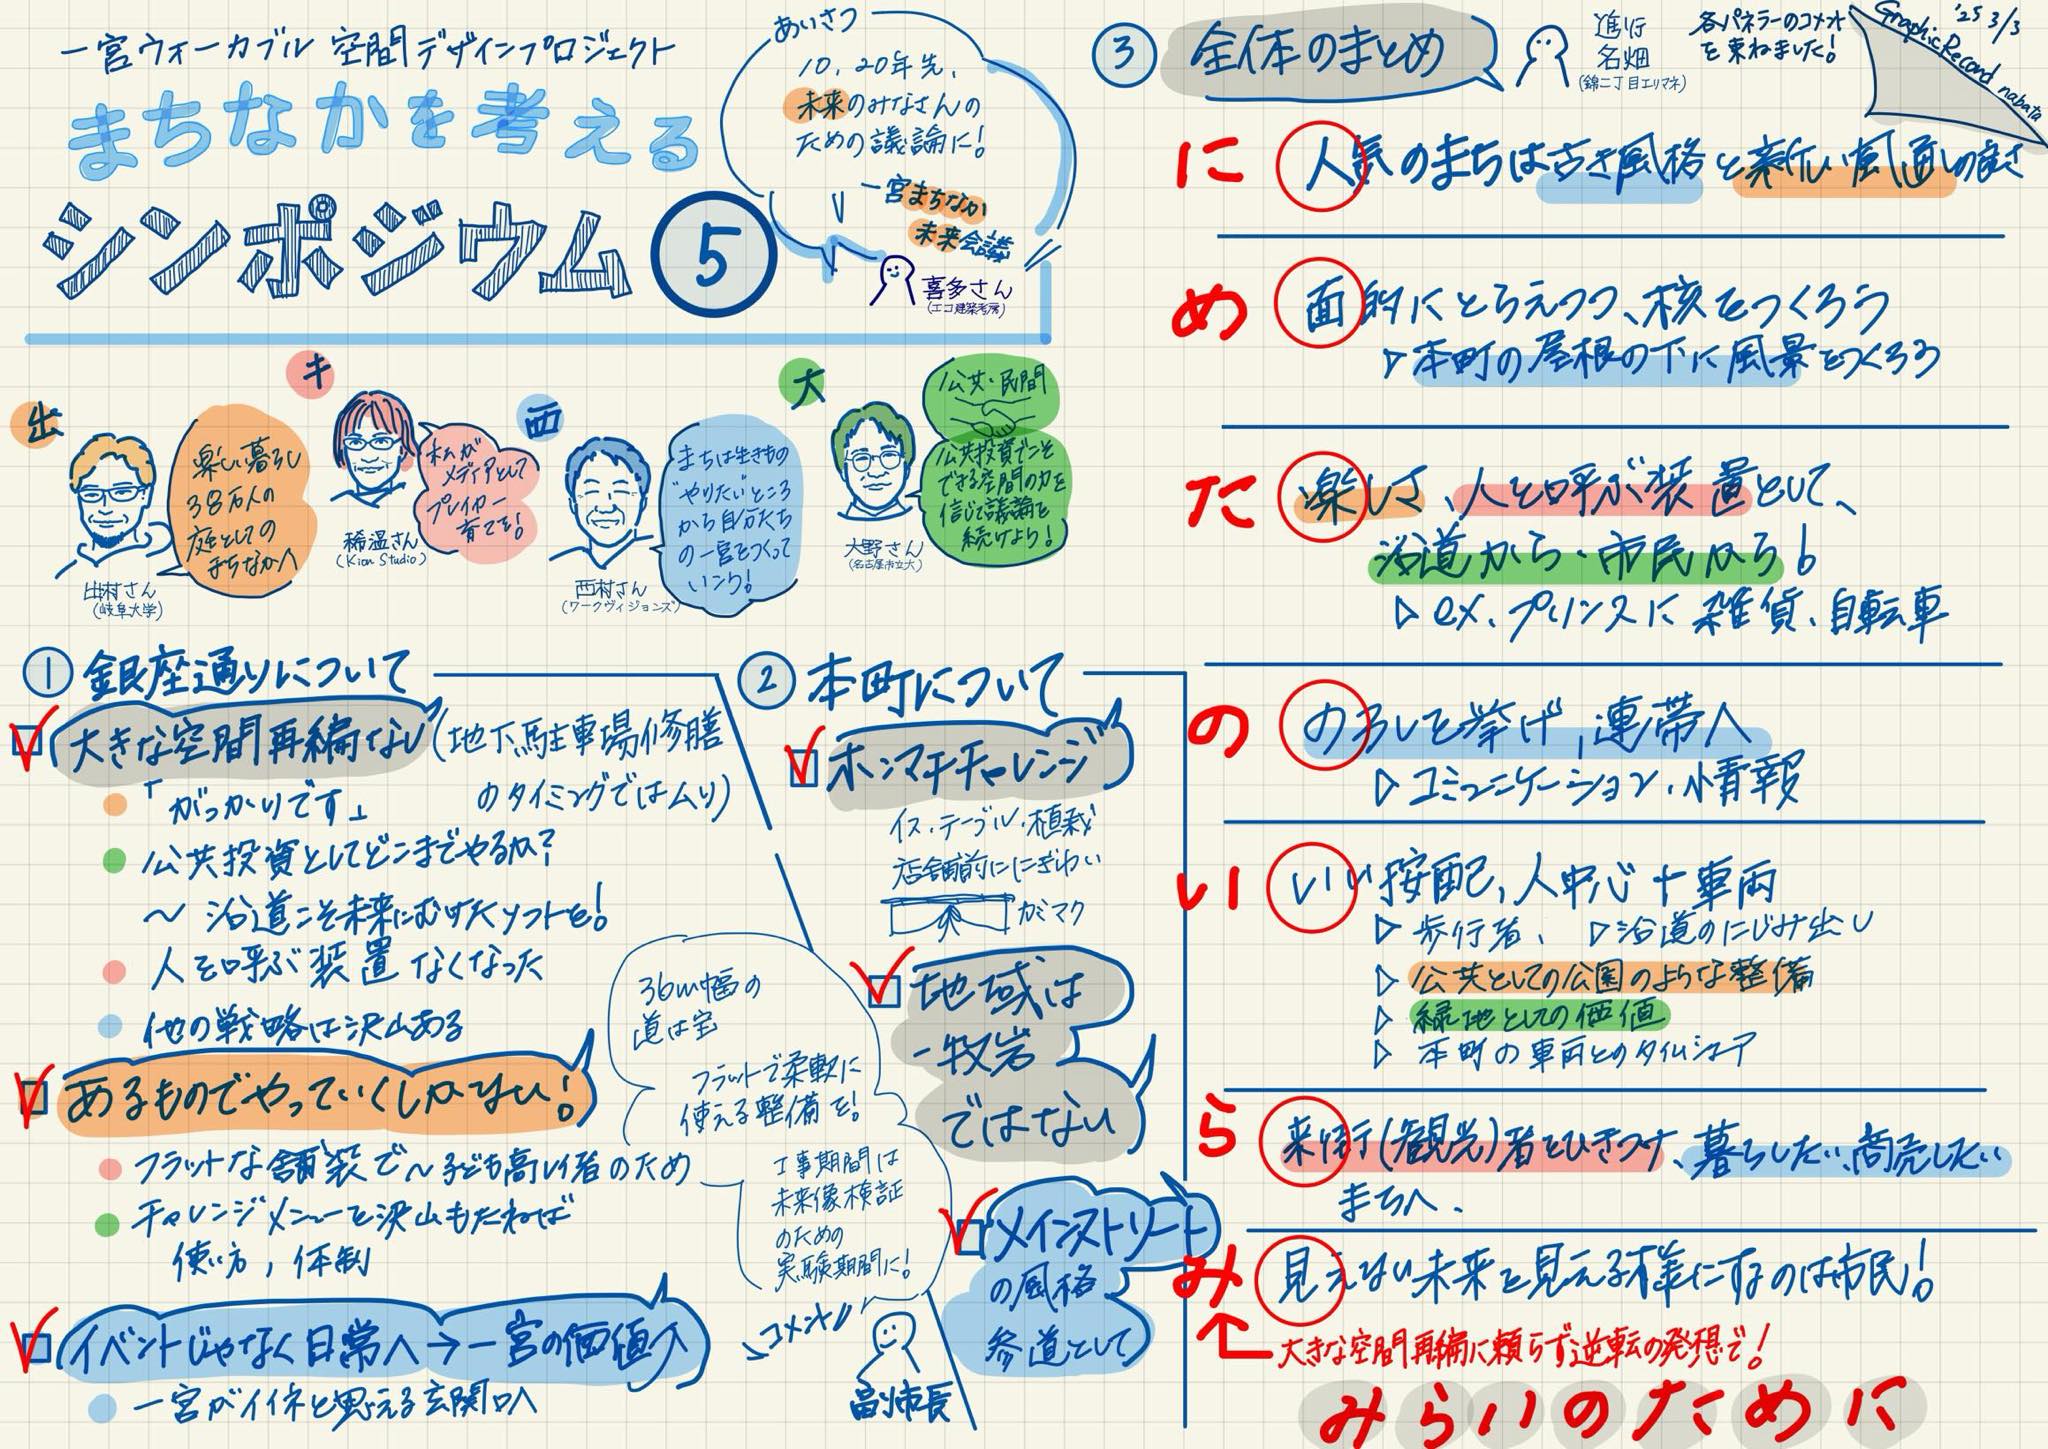 一宮ウォーカブル 空間デザインプロジェクト
まちなかを考える
シンポジウム⑤
あいさつ
10、20年先、
未来のみなさんの
ための議論に!
一宮まちなか
未来会議
喜多さん
(エコ建築考房)
出
楽しい暮らし
38万人の
庭としての
まちなかへ
出村さん
(岐阜大学)
キ
私が
メディアとして
プレイヤー
育てを!
稀温さん
(Kion Studio)
西
まちは生きもの
"やりたい"ところ
から自分たち
の一宮をつくって
いこう!
西村さん
(ワークヴィジョンズ)
大
公共・民間
公共投資でこそ
できる空間の力を
信じて議論を
続けよう!
大野さん
(名古屋市立大)
① 銀座通りについて
大きな空間再編なし(地下駐車場修膳
のタイミングではムリ)
「がっかりです」
公共投資としてどこまでやるか?
～沿道こそ未来にむけたソフトを!
人を呼ぶ装置なくなった
他の戦略は沢山ある
あるものでやっていくしかない!
フラットな舗装で～子ども高レイ者のため
チャレンジメニューを沢山もたねば
使い方,体制
イベントじゃなく日常へ→一宮の価値へ
一宮がイイネと思える玄関口へ
36m幅の
道は宝
フラットで柔軟に
使える整備を!
工事期間は
未来像検証
のための
実験期間に!
コメント
副市長
② 本町について
ホンマチチャレンジ
イス・テーブル・植栽
店舗前ににぎわい
ガマク
地域は
一枚岩
ではない
メインストリート
の風格
参道として
③ 全体のまとめ
進行
名畑
(錦二丁目エリマネ)
各パネラーのコメント
を束ねました!
'25 3/3
Graphic Record nabata
に 人気のまちは古き風格と新しい風通しの良さ
め 面的にとらえつつ、核をつくろう
▷本町の屋根の下に風景をつくろう
た 楽しさ、人を呼ぶ装置として、
沿道から・市民から!
▷ex. プリンスに雑貨、自転車
の のろしを挙げ,連帯へ
▷コミュニケーション・情報
い いい按配,人中心+車両
▷歩行者、 ▷沿道のにじみ出し
▷公共としての公園のような整備
▷緑地としての価値
▷本町の車両とのタイムシェア
ら 来街(観光)者をひきつけ、暮らしたい、商売したい
まちへ.
み 見えない未来を見える様にするのは市民!
大きな空間再編に頼らず逆転の発想で!
みらいのために